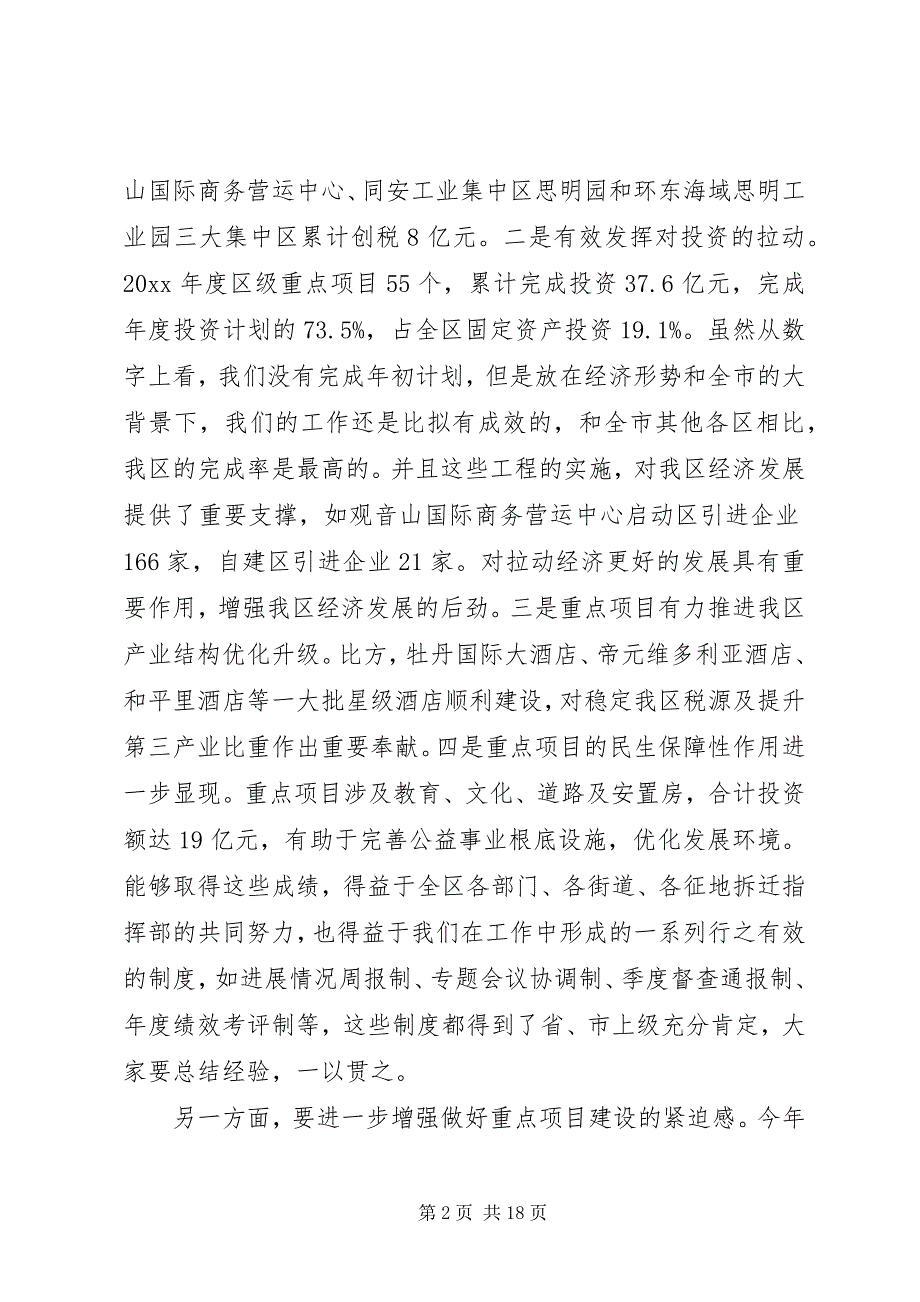 山国际商务营运中心、同安工业集中区思明园和环东海域思明工
业园三大集中区累计创税 8 亿元。二是有效发挥对投资的拉动。
20xx 年度区级重点项目 55 个，累计完成投资 37.6 亿元，完成
年度投资计划的 73.5%，占全区固定资产投资 19.1%。虽然从数
字上看，我们没有完成年初计划，但是放在经济形势和全市的大
背景下，我们的工作还是比拟有成效的，和全市其他各区相比，
我区的完成率是最高的。并且这些工程的实施，对我区经济发展
提供了重要支撑，如观音山国际商务营运中心启动区引进企业
166 家，自建区引进企业 21 家。对拉动经济更好的发展具有重
要作用，增强我区经济发展的后劲。三是重点项目有力推进我区
产业结构优化升级。比方，牡丹国际大酒店、帝元维多利亚酒店、
和平里酒店等一大批星级酒店顺利建设，对稳定我区税源及提升
第三产业比重作出重要奉献。四是重点项目的民生保障性作用进
一步显现。重点项目涉及教育、文化、道路及安置房，合计投资
额达 19 亿元，有助于完善公益事业根底设施，优化发展环境。
能够取得这些成绩，得益于全区各部门、各街道、各征地拆迁指
挥部的共同努力，也得益于我们在工作中形成的一系列行之有效
的制度，如进展情况周报制、专题会议协调制、季度督查通报制、
年度绩效考评制等，这些制度都得到了省、市上级充分肯定，大
家要总结经验，一以贯之。
另一方面，要进一步增强做好重点项目建设的紧迫感。今年
第 2 页 共 18 页